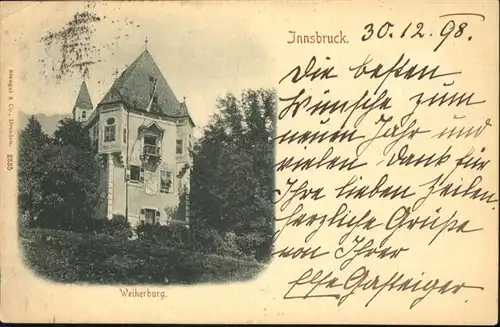 Innsbruck. 30.12.98.
Die besten
Wünsche zum
neuen Jahr und
vielen Dank für
Ihre lieben Zeilen.
Herzliche Grüße
von Ihrer
Else Gasteiger
Stengel & Co., Dresden. 2535
Weiherburg.